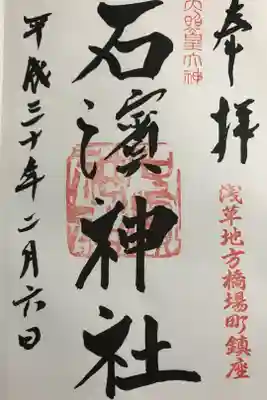 奉拝
天照皇大神
浅草地方橋場町鎮座
石濱神社
平成三十年二月六日